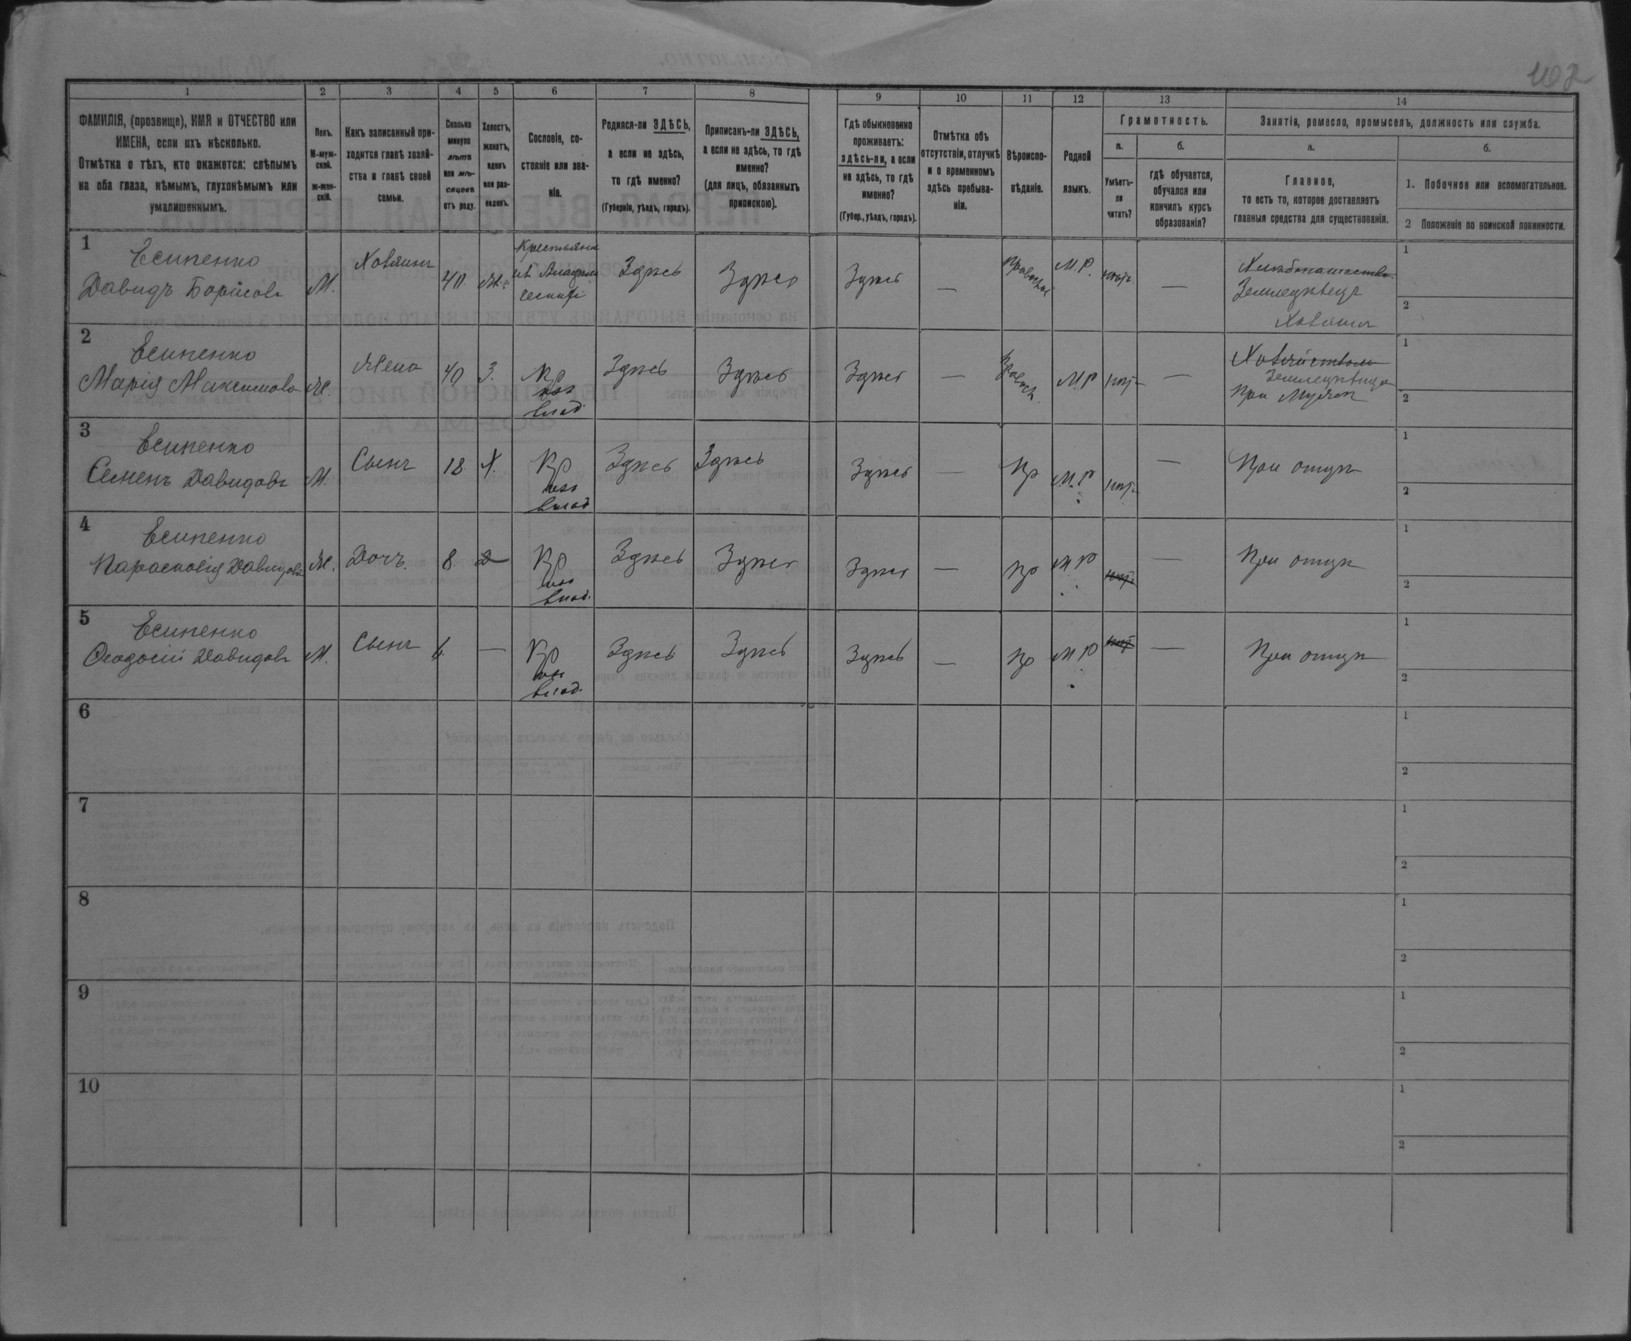 1 2 3 4 5 6 7 8 9 10 11 12 13 14
ФАМИЛІЯ, (прозвище), ИМЯ и ОТЧЕСТВО или
ИМЕНА, если ихъ нѣсколько.
Отмѣтка о тѣхъ, кто окажется: слѣпымъ
на оба глаза, нѣмымъ, глухонѣмымъ или
умалишеннымъ.
Полъ.
М-муж-
ской.
ж-жен-
скій.
Какъ записанный при-
ходится главѣ хозяй-
ства и главѣ своей
семьи.
Сколько
минуло
лѣтъ
или мѣ-
сяцевъ
отъ роду.
Холостъ,
женатъ,
вдовъ
или раз-
веденъ.
Сословіе, со-
стояніе или зва-
ніе.
Родился-ли ЗДѢСЬ,
а если не здѣсь,
то гдѣ именно?
(Губернія, уѣздъ, городъ).
Приписанъ-ли ЗДѢСЬ,
а если не здѣсь, то гдѣ
именно?
(для лицъ, обязанныхъ
припискою).
Гдѣ обыкновенно
проживаетъ:
здѣсь-ли, а если
не здѣсь, то гдѣ
именно?
(Губер., уѣздъ, городъ).
Отмѣтка объ
отсутствіи, отлучкѣ
и о временномъ
здѣсь пребыва-
ніи.
Вѣроиспо-
вѣданіе.
Родной
языкъ.
Грамотность.
а.
Умѣетъ-
ли
читать?
б.
гдѣ обучается,
обучался или
кончилъ курсъ
образованія?
Занятія, ремесло, промыселъ, должность или служба.
а.
Главное,
то есть то, которое доставляетъ
главныя средства для существованія.
б.
1. Побочное или вспомогательное.
2 Положеніе по воинской повинности.
1
Есипенко
Давидъ Борисовъ
М.
Хозяинъ
40
Здѣсь
Здѣсь
Здѣсь
М.Р.
—
Хозяинъ
1
2
2
Есипенко
Марія Максимова
Ж.
Жена
40
З.
Кр
влад.
Здѣсь
Здѣсь
Здѣсь
—
М.Р
—
При мужѣ
1
2
3
Есипенко
Семенъ Давидовъ
М.
Сынъ
18
Х.
Кр
влад.
Здѣсь
Здѣсь
Здѣсь
—
Пр
М.Р
—
При отцѣ
1
2
4
Есипенко
Парасковія Давидова
Ж.
Дочь.
8
Кр
влад.
Здѣсь
Здѣсь
Здѣсь
—
Пр
М.Р
—
При отцѣ
1
2
5
Есипенко
Ѳеодосій Давидовъ
М.
Сынъ
6
—
Кр
влад.
Здѣсь
Здѣсь
Здѣсь
—
Пр
М.Р
—
При отцѣ
1
2
6
1
2
7
1
2
8
1
2
9
1
2
10
1
2